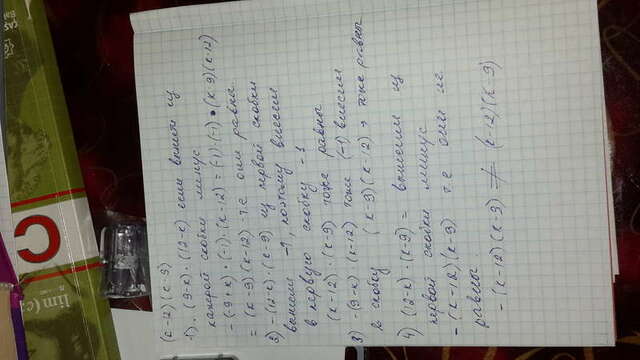 (к-2)(к-9)
1). (9-к) · (12-к) если вынести из
каждой скобки минус
-(9+к) · (-1) · (к-12) = (-1) · (-1) · (к-9)(к-12)
= (к-9)(к-12) т.е. они равны.
2) -(12-к) · (к-9) из первой скобки
вынесли -1, поэтому внесли
в первую скобку -1
(к-12) · (к-9) тоже равны
3) -(9-к) · (к-12) тоже (-1) внесли
в скобку (к-9)(к-12) → тоже равны
4) (12-к) · (к-9) = вынесем из
первой скобки минус
-(к-12)(к-9) т.е. они не
равны.
-(к-12)(к-9) ≠ (к-12)(к-9)
C
lim